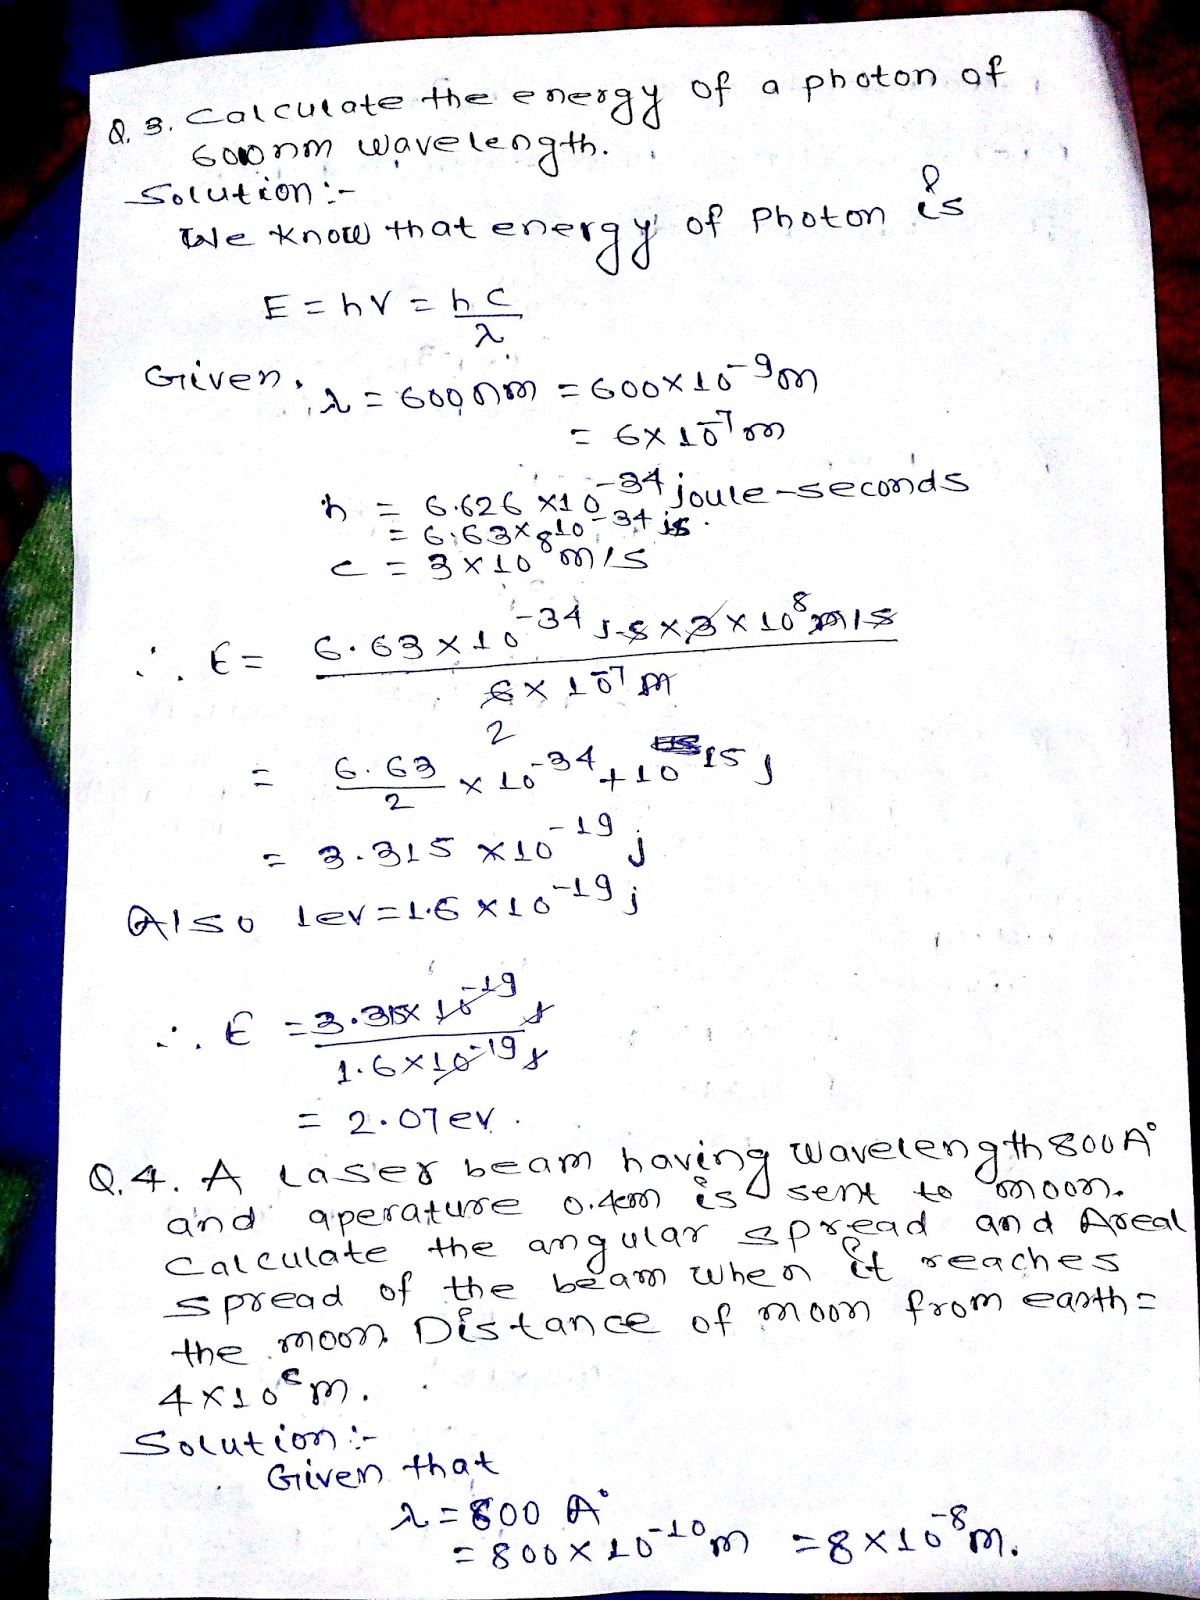 Q. 3. Calculate the energy of a photon of
600nm wavelength.
Solution:-
We know that energy of Photon is
E = hν = hc/λ
Given. λ = 600nm = 600×10⁻⁹m
= 6×10⁻⁷m
h = 6.626×10⁻³⁴ joule-seconds
= 6.63×10⁻³⁴ js.
c = 3×10⁸ m/s
∴ E = 6.63×10⁻³⁴ J-s×3×10⁸m/s
6×10⁻⁷m
2
= 6.63/2 × 10⁻³⁴ + 10¹⁵ J
= 3.315×10⁻¹⁹ j
Also 1ev=1.6×10⁻¹⁹ j
∴ E = 3.315×10⁻¹⁹ J
1.6×10⁻¹⁹ J
= 2.07ev.
Q.4. A laser beam having wavelength 800A°
and aperature 0.4cm is sent to moon.
Calculate the angular spread and Areal
spread of the beam when it reaches
the moon. Distance of moon from earth=
4×10⁸m.
Solution:-
Given that
λ = 800 A°
= 800×10⁻¹⁰m = 8×10⁻⁸m.